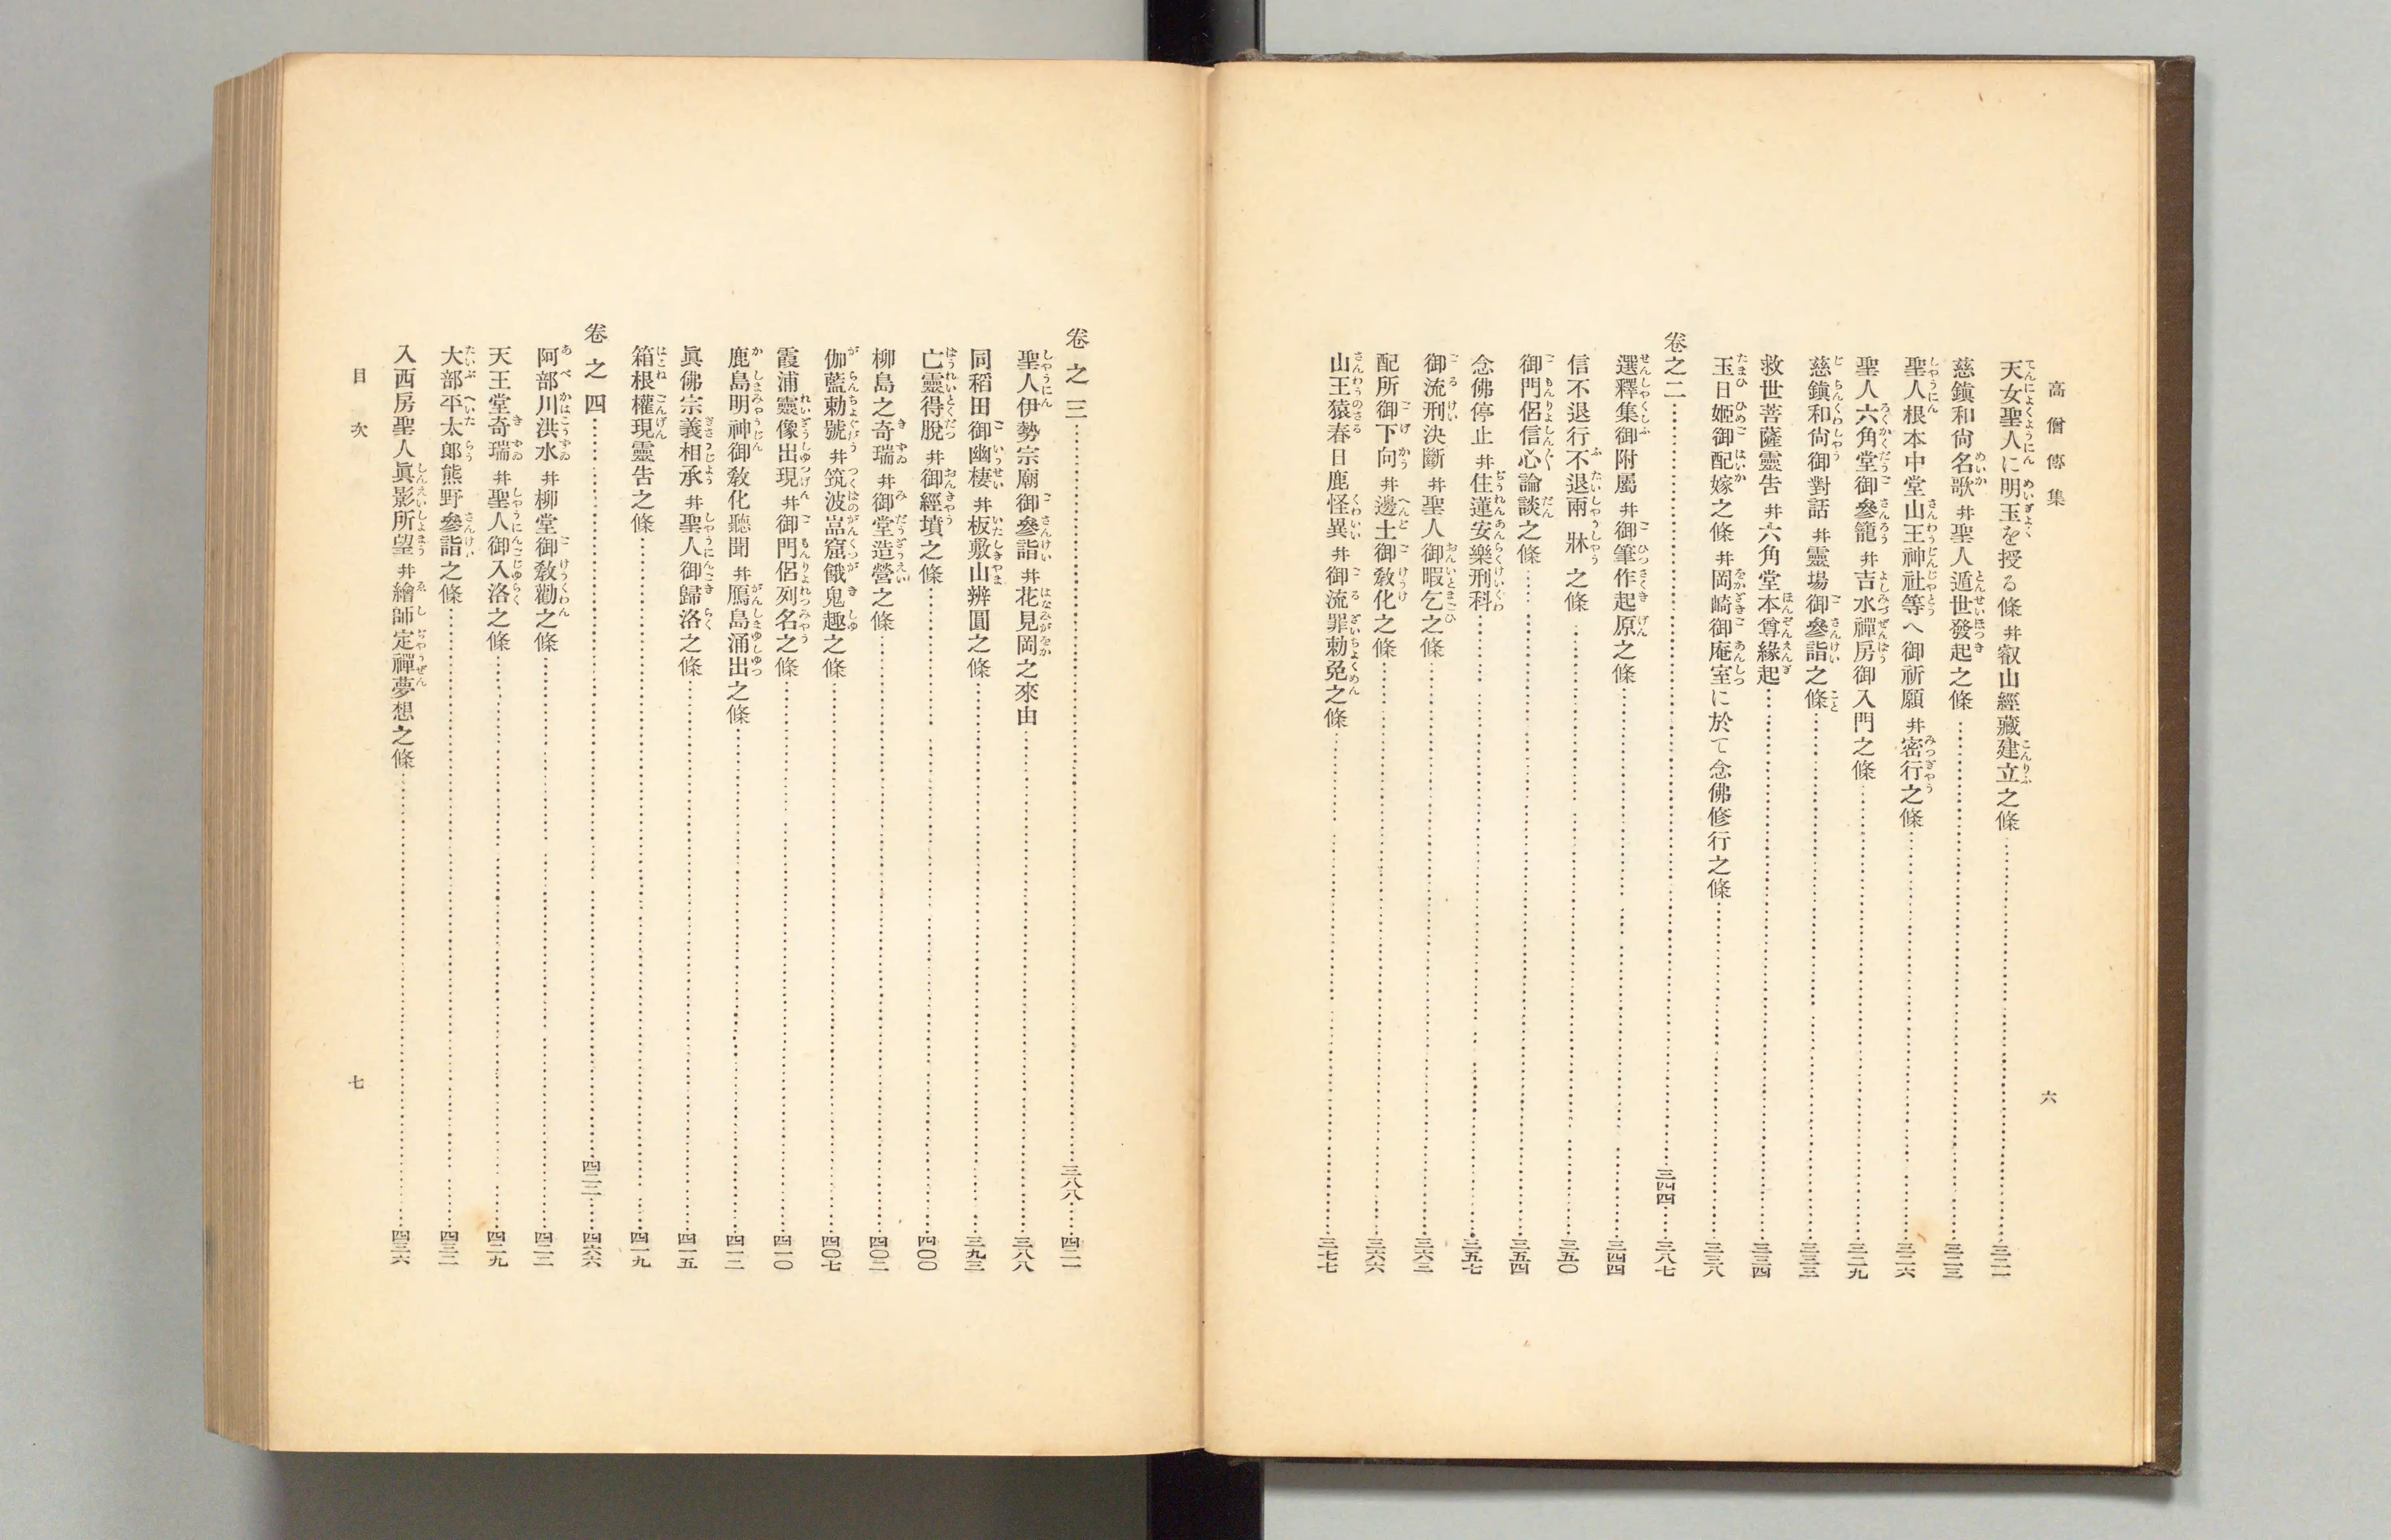 高僧傳集
六
天女聖人に明玉を授る條 幷 叡山經藏建立之條……三二一
慈鎭和尙名歌 幷 聖人遁世發起之條……三二三
聖人根本中堂山王神社等へ御祈願 幷 密行之條……三二六
聖人六角堂御參籠 幷 吉水禪房御入門之條……三二九
慈鎭和尙御對話 幷 靈場御參詣之條……三三三
救世菩薩靈告 幷 六角堂本尊緣起……三三四
玉日姬御配嫁之條 幷 岡崎御庵室に於て念佛修行之條……三三八
卷之二……三四四……三八七
選釋集御附屬 幷 御筆作起原之條……三四四
信不退行不退兩牀之條……三五〇
御門侶信心論談之條……三五四
念佛停止 幷 住蓮安樂刑科……三五七
御流刑決斷 幷 聖人御暇乞之條……三六三
配所御下向 幷 邊土御敎化之條……三六六
山王猿春日鹿怪異 幷 御流罪勅免之條……三七七
卷之三……三八八……四二一
聖人伊勢宗廟御參詣 幷 花見岡之來由……三八八
同稻田御幽棲 幷 板敷山辨圓之條……三九三
亡靈得脫 幷 御經墳之條……四〇〇
柳島之奇瑞 幷 御堂造營之條……四〇二
伽藍勅號 幷 筑波嵓窟餓鬼趣之條……四〇七
霞浦靈像出現 幷 御門侶列名之條……四一〇
鹿島明神御敎化聽聞 幷 鴈島涌出之條……四一二
眞佛宗義相承 幷 聖人御歸洛之條……四一五
箱根權現靈告之條……四一九
卷之四……四二二……四六六
阿部川洪水 幷 柳堂御敎勸之條……四二二
天王堂奇瑞 幷 聖人御入洛之條……四二九
大部平太郞熊野參詣之條……四三二
入西房聖人眞影所望 幷 繪師定禪夢想之條……四三六
目次
七